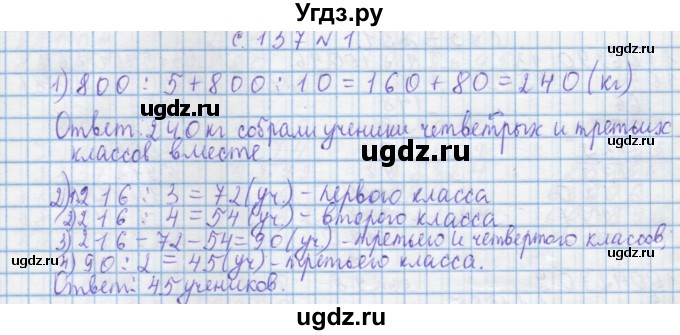 Угдз.ру
с. 137 № 1
1) 800 : 5 + 800 : 10 = 160 + 80 = 240 (кг)
Ответ: 240 кг собрали ученики четвертых и третьих
классов вместе.
2) 1) 216 : 3 = 72 (уч) - первого класса
2) 216 : 4 = 54 (уч) - второго класса
3) 216 - 72 - 54 = 90 (уч) - третьего и четвертого классов,
4) 90 : 2 = 45 (уч) - третьего класса.
Ответ: 45 учеников.